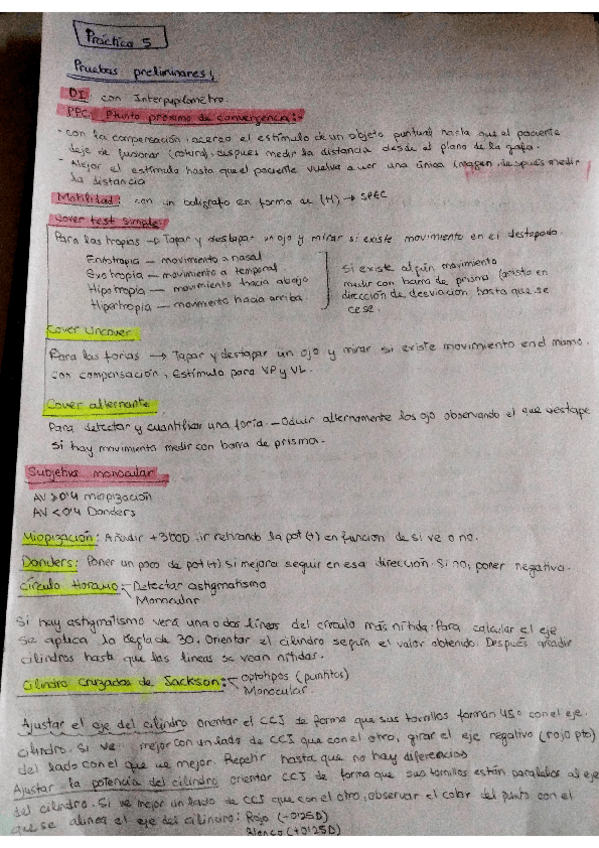 Práctica 5
Pruebas preliminares:
DI: con Interpupilometro.
PPC: Punto proximo de convergencia:
- con la compensación, acerco el estímulo de un objeto puntual hasta que el paciente
deje de fusionar (rotura), despues medir la distancia desde el plano de la gafa.
- Alejar el estímulo hasta que el paciente vuelva a ver una única imagen, después medir
la distancia
Motilidad: con un boligrafo en forma de (H) → SPEC
Cover test simple:
Para las tropias → Tapar y destapar un ojo y mirar si existe movimiento en el destapado.
Endotropia - movimiento a nasal
Exotropia - movimiento a temporal
Hipotropia - movimiento hacia abajo
Hipertropia - movimiento hacia arriba.
Si existe algún movimiento
medir con barra de prisma (arista en
dirección de desviación hasta que se
cese.
Cover Uncover
Para las forias → Tapar y destapar un ojo y mirar si existe movimiento en el mismo.
con compensación, Estímulo para VP y VL.
Cover alternante
Para detectar y cuantificar una foria. - Ocluir alternamente los ojo observando el que
Si hay movimiento medir con barra de prisma.
Subjetivo monocular
AV > 0'4 miopización
AV < 0'4 Donders
Miopización: Añadir +3'00D, ir retirando la pot (+) en funcion de si ve o no.
Donders: Poner un poco de pot (+) si mejora seguir en esa dirección. Si no, poner negativa.
Círculo Horario: - Detectar astigmatismo
Monocular
Si hay astigmatismo verá una o dos líneas del círculo más nítida. Para calcular el eje
se aplica la Regla de 30. Orientar el cilindro según el valor obtenido. Después añadir
cilindros hasta que las lineas se vean nítidas.
Cilindro Cruzados de Jackson: - optotipos (puntitos)
Monocular.
Ajustar el eje del cilindro orientar el CCJ de forma que sus tornillos forman 45º con el eje.
cilindro. Si ve mejor con un lado de CCJ que con el otro, girar el eje negativo (rojo pto)
del lado con el que ve mejor. Repetir hasta que no hay diferencias
Ajustar la potencia del cilindro orientar CCJ de forma que sus tornillos están paralelos al eje
del cilindro. Si ve mejor un lado de CCJ que con el otro, observar el color del punto con el
que se alinea el eje del cilindro: Rojo (-0'25D)
Blanco (+0'25D)